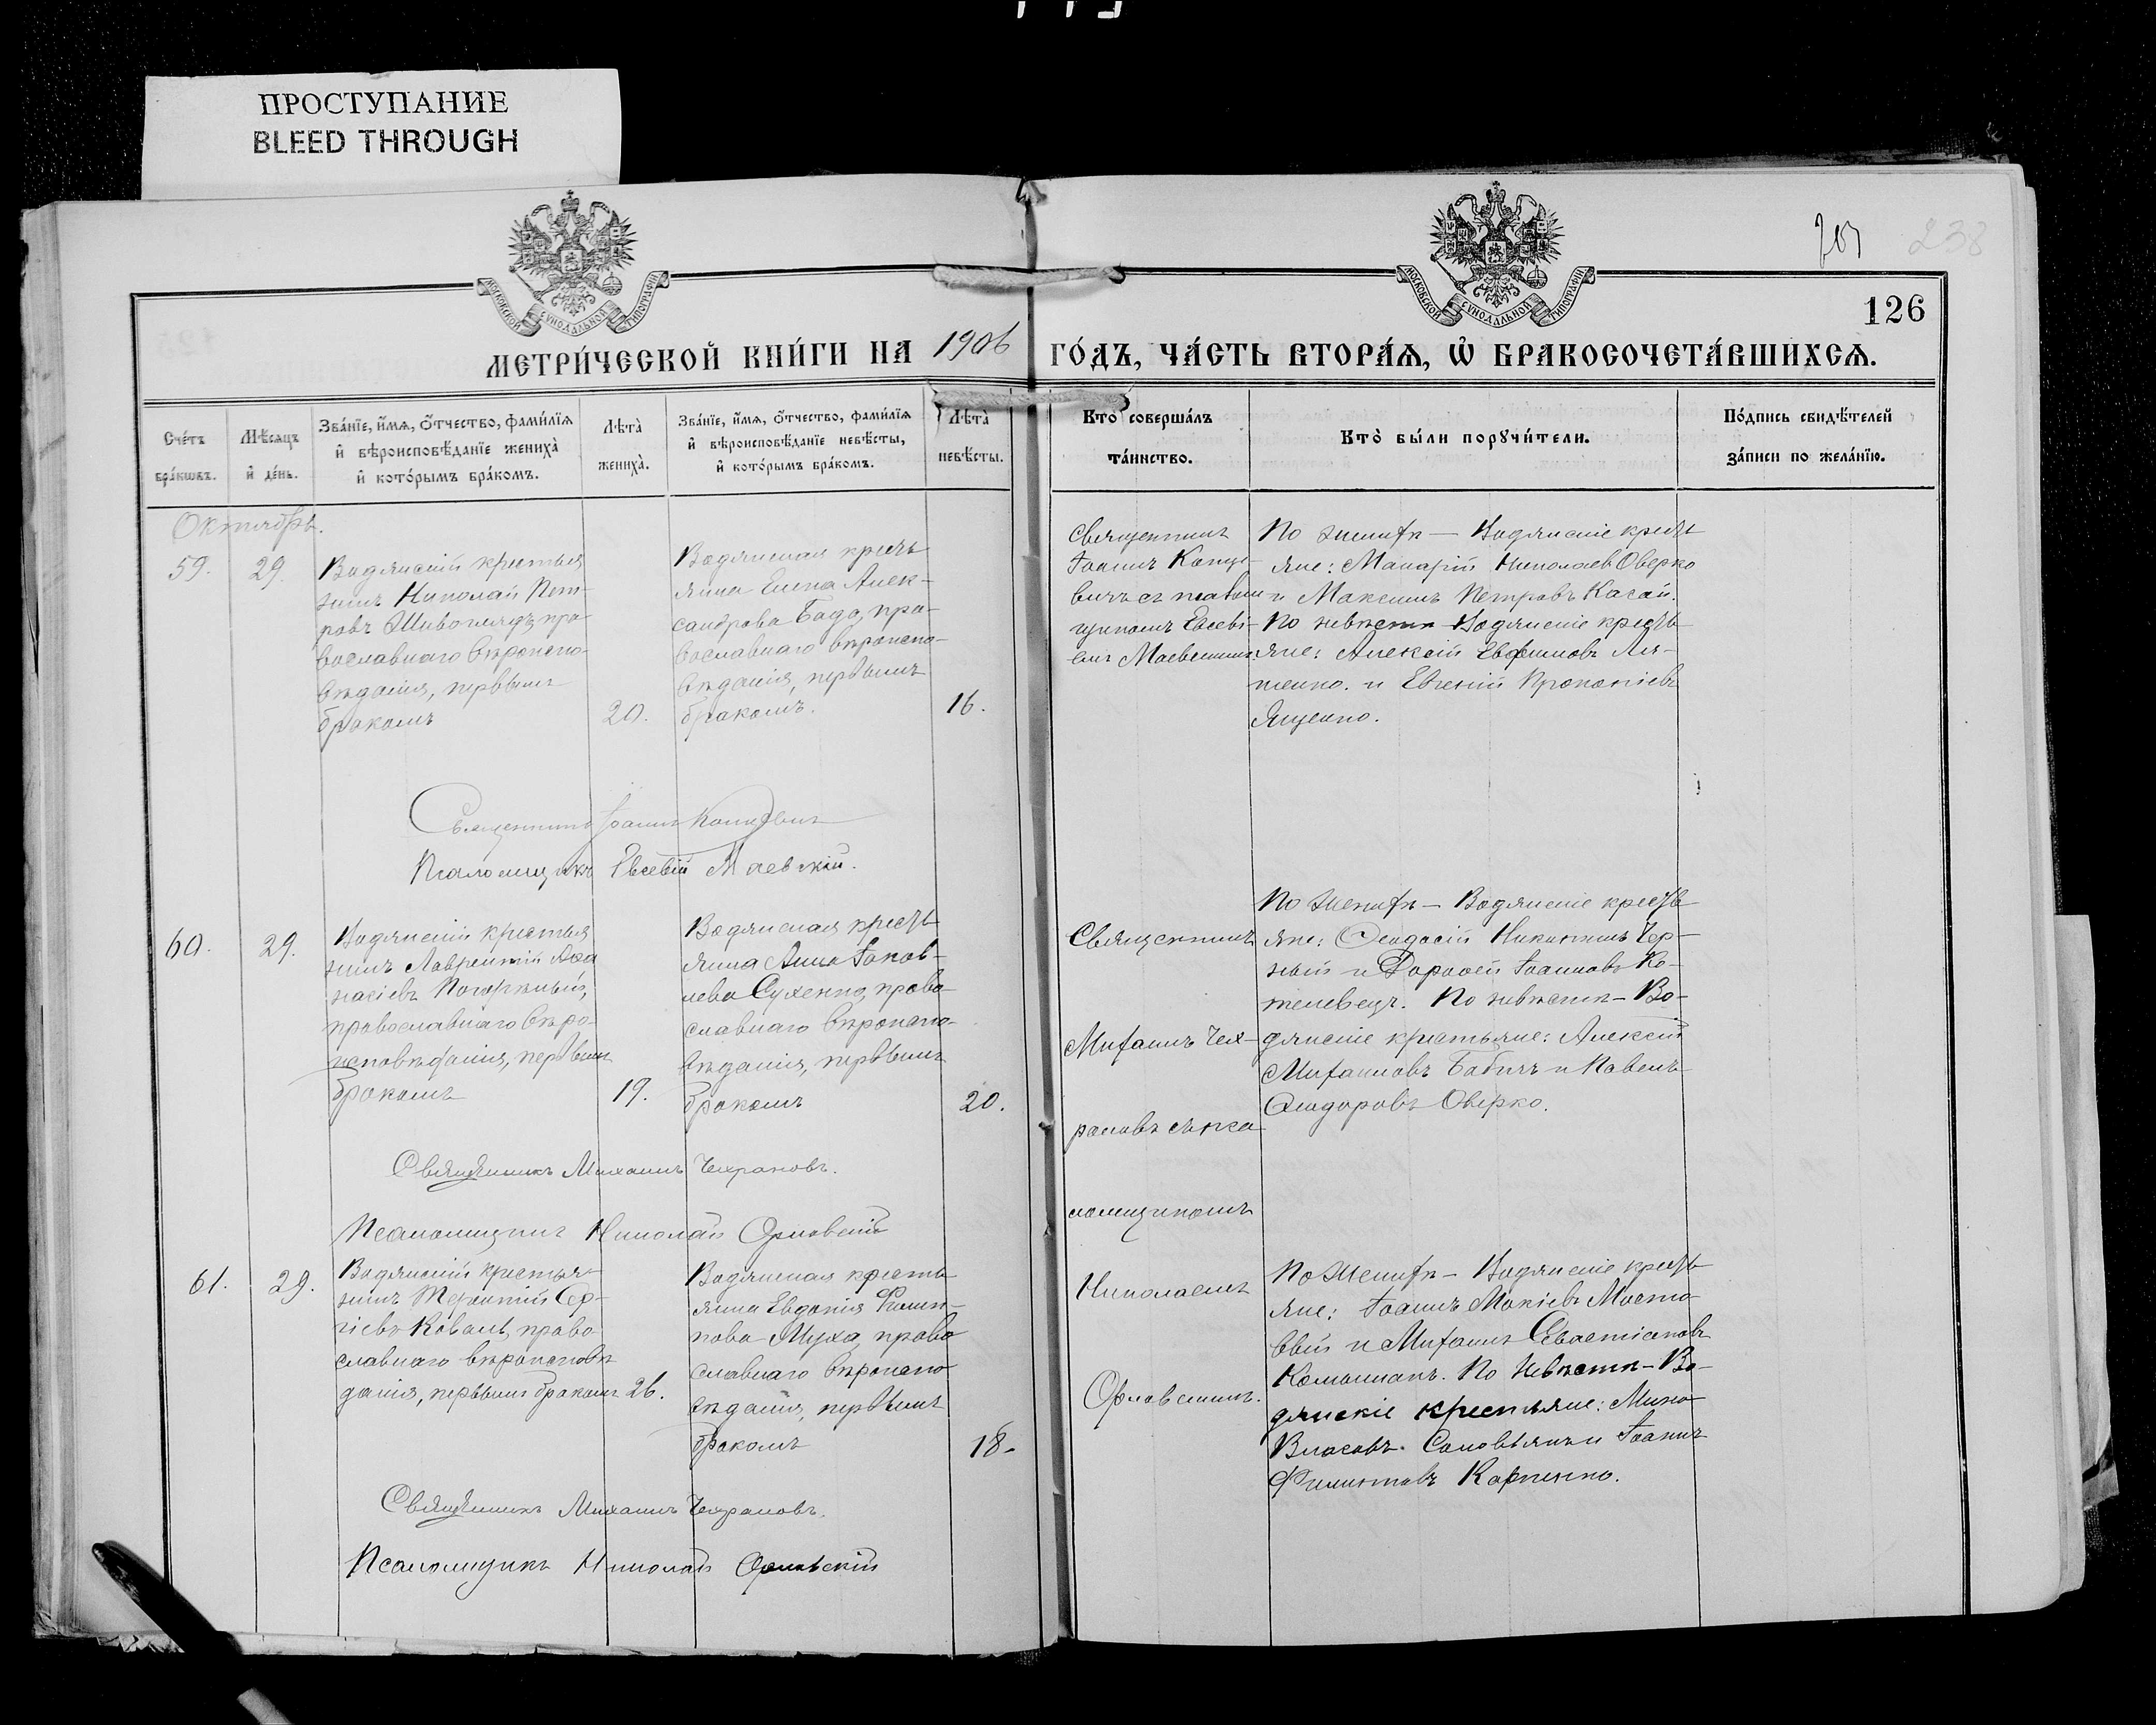 ПРОСТУПАНИЕ
BLEED THROUGH
238
126
МОСКОВСКОЙ СУНОДАЛЬНОЙ ТИПОГРАФІИ
МОСКОВСКОЙ СУНОДАЛЬНОЙ ТИПОГРАФІИ
МЕТРИ́ЧЕСКОЙ КНИ́ГИ НА 1906 ГО́ДЪ, ЧА́СТЬ ВТОРА́Я, Ѿ БРАКОСОЧЕТА́ВШИХСЯ.
Сче́тъ
бра́кѡвъ.
Мѣ́сяцъ
и҆ де́нь.
Зва́нїе, и҆́мя, ѻ҆́тчество, фами́лїя
и҆ вѣроисповѣ́данїе жениха̀
и҆ кото́рымъ бра́комъ.
Лѣта̀
жениха̀.
Зва́нїе, и҆́мя, ѻ҆́тчество, фами́лїя
и҆ вѣроисповѣ́данїе невѣ́сты,
и҆ кото́рымъ бра́комъ.
Лѣта̀
невѣ́сты.
Кто̀ соверша́лъ
та́инство.
Кто̀ бы́ли порꙋчи́тели.
По́дпись свидѣ́телей
за́писи по жела́нїю.
Октябрь.
59.
29.
Водянскій крестья
нинъ Николай Пет-
ровъ Шивопляцъ, пра-
вославнаго вѣроиспо-
вѣданія, первымъ
бракомъ
20.
Водянская кресть
янка Елена Алек-
сандрова Бадо, пра-
вославнаго вѣроиспо-
вѣданія, первымъ
бракомъ.
16.
Священникъ
Іоаннъ Копце-
вичъ съ псалом
щикомъ Евсеві-
емъ Маевскимъ.
По женихѣ — Водянскіе кресть
яне: Макарій Николаевъ Оверко
и Максимъ Петровъ Касай.
По невѣстѣ Водянскіе кресть
яне: Алексій Евфимовъ Ля-
шенко. и Евгеній Прокопіевъ
Ященко.
Священникъ Іоаннъ Копцевичъ
Псаломщикъ Евсевій Маевскій.
60.
29.
Водянскій крестья
нинъ Лаврентій Аѳа
насіевъ Погорѣлый,
православнаго вѣро-
исповѣданія, первымъ
бракомъ
19.
Водянская кресть
янка Анна Іаков-
лева Сухенко, право
славнаго вѣроиспо-
вѣданія, первымъ
бракомъ
20.
Священникъ
Михаилъ Чех-
рановъ съ пса
ломщикомъ
Николаемъ
Орловскимъ.
По женихѣ — Водянскіе кресть
яне: Ѳеодосій Никитинъ Чер-
ный и Дороѳей Іоанновъ Ко-
телевецъ. По невѣстѣ — Во-
дянскіе крестьяне: Алексій
Михаиловъ Бабичъ и Павелъ
Ѳеодоровъ Оверко.
Священникъ Михаилъ Чехрановъ.
Псаломщикъ Николай Орловскій
61.
29.
Водянскій крестья-
нинъ Терентій Сер-
гіевъ Коваль, право
славнаго вѣроисповѣ
данія, первымъ бракомъ
26.
Водянская кресть
янка Евдокія Филип-
пова Муха, право
славнаго вѣроиспо
вѣданія, первымъ
бракомъ
18.
По женихѣ — Водянскіе кресть
яне: Іоаннъ Мокіевъ Мосто-
вый и Михаилъ Севастіановъ
Компанъ. По невѣстѣ — Во-
дянскіе крестьяне: Мина
Власовъ Соловьянъ и Іоаннъ
Филиповъ Карпенко.
Священникъ Михаилъ Чехрановъ.
Псаломщикъ Николай Орловскій